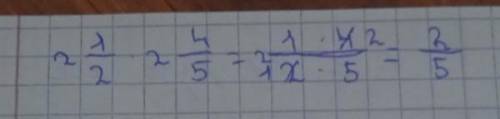 2 1/2 · 2 4/5 = 2 1 · 4 2 / 1 2 · 5 = 2/5